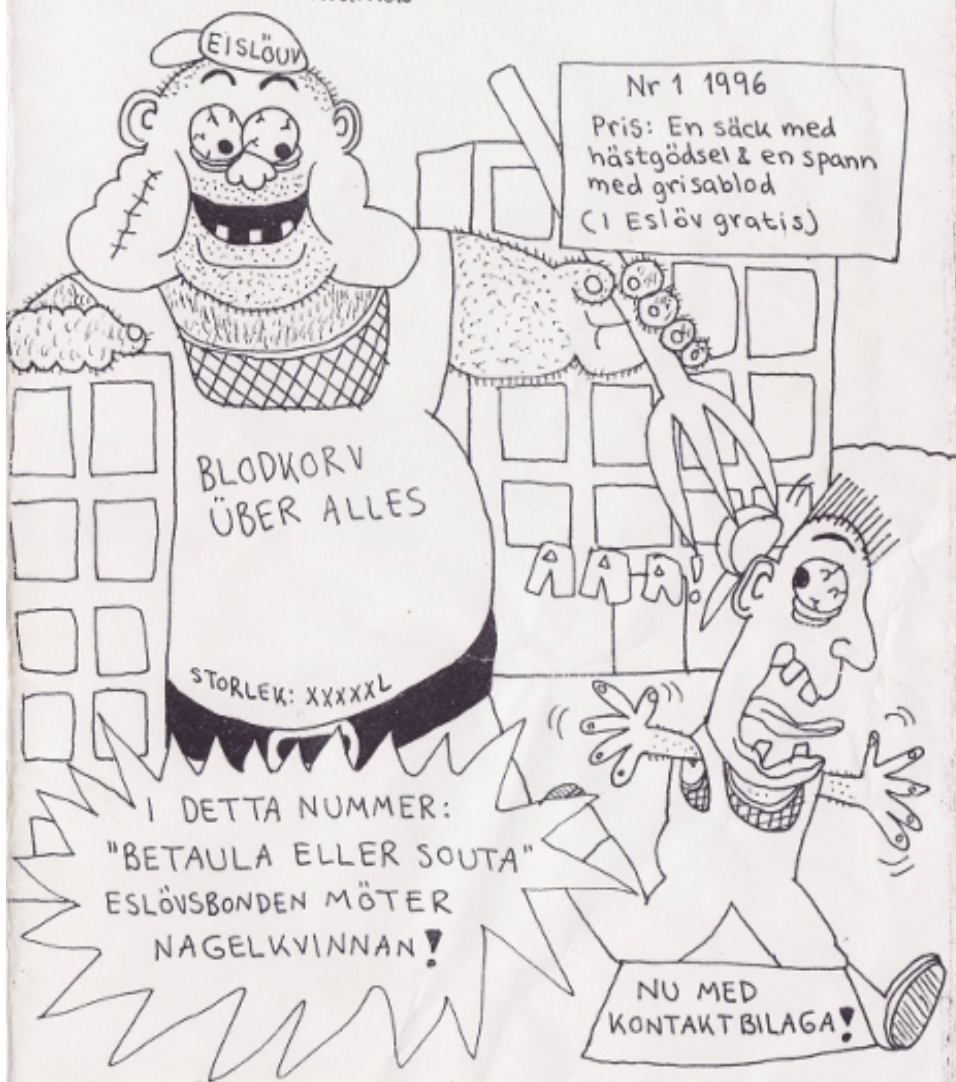 EISLÖUV
Nr 1 1996
Pris: En säck med
hästgödsel & en spann
med grisablod
(I Eslöv gratis)
BLODKORV
ÜBER ALLES
AAA!
STORLEK: XXXXXL
I DETTA NUMMER:
"BETAULA ELLER SOUTA"
ESLÖVSBONDEN MÖTER
NAGELKVINNAN!
NU MED
KONTAKTBILAGA!